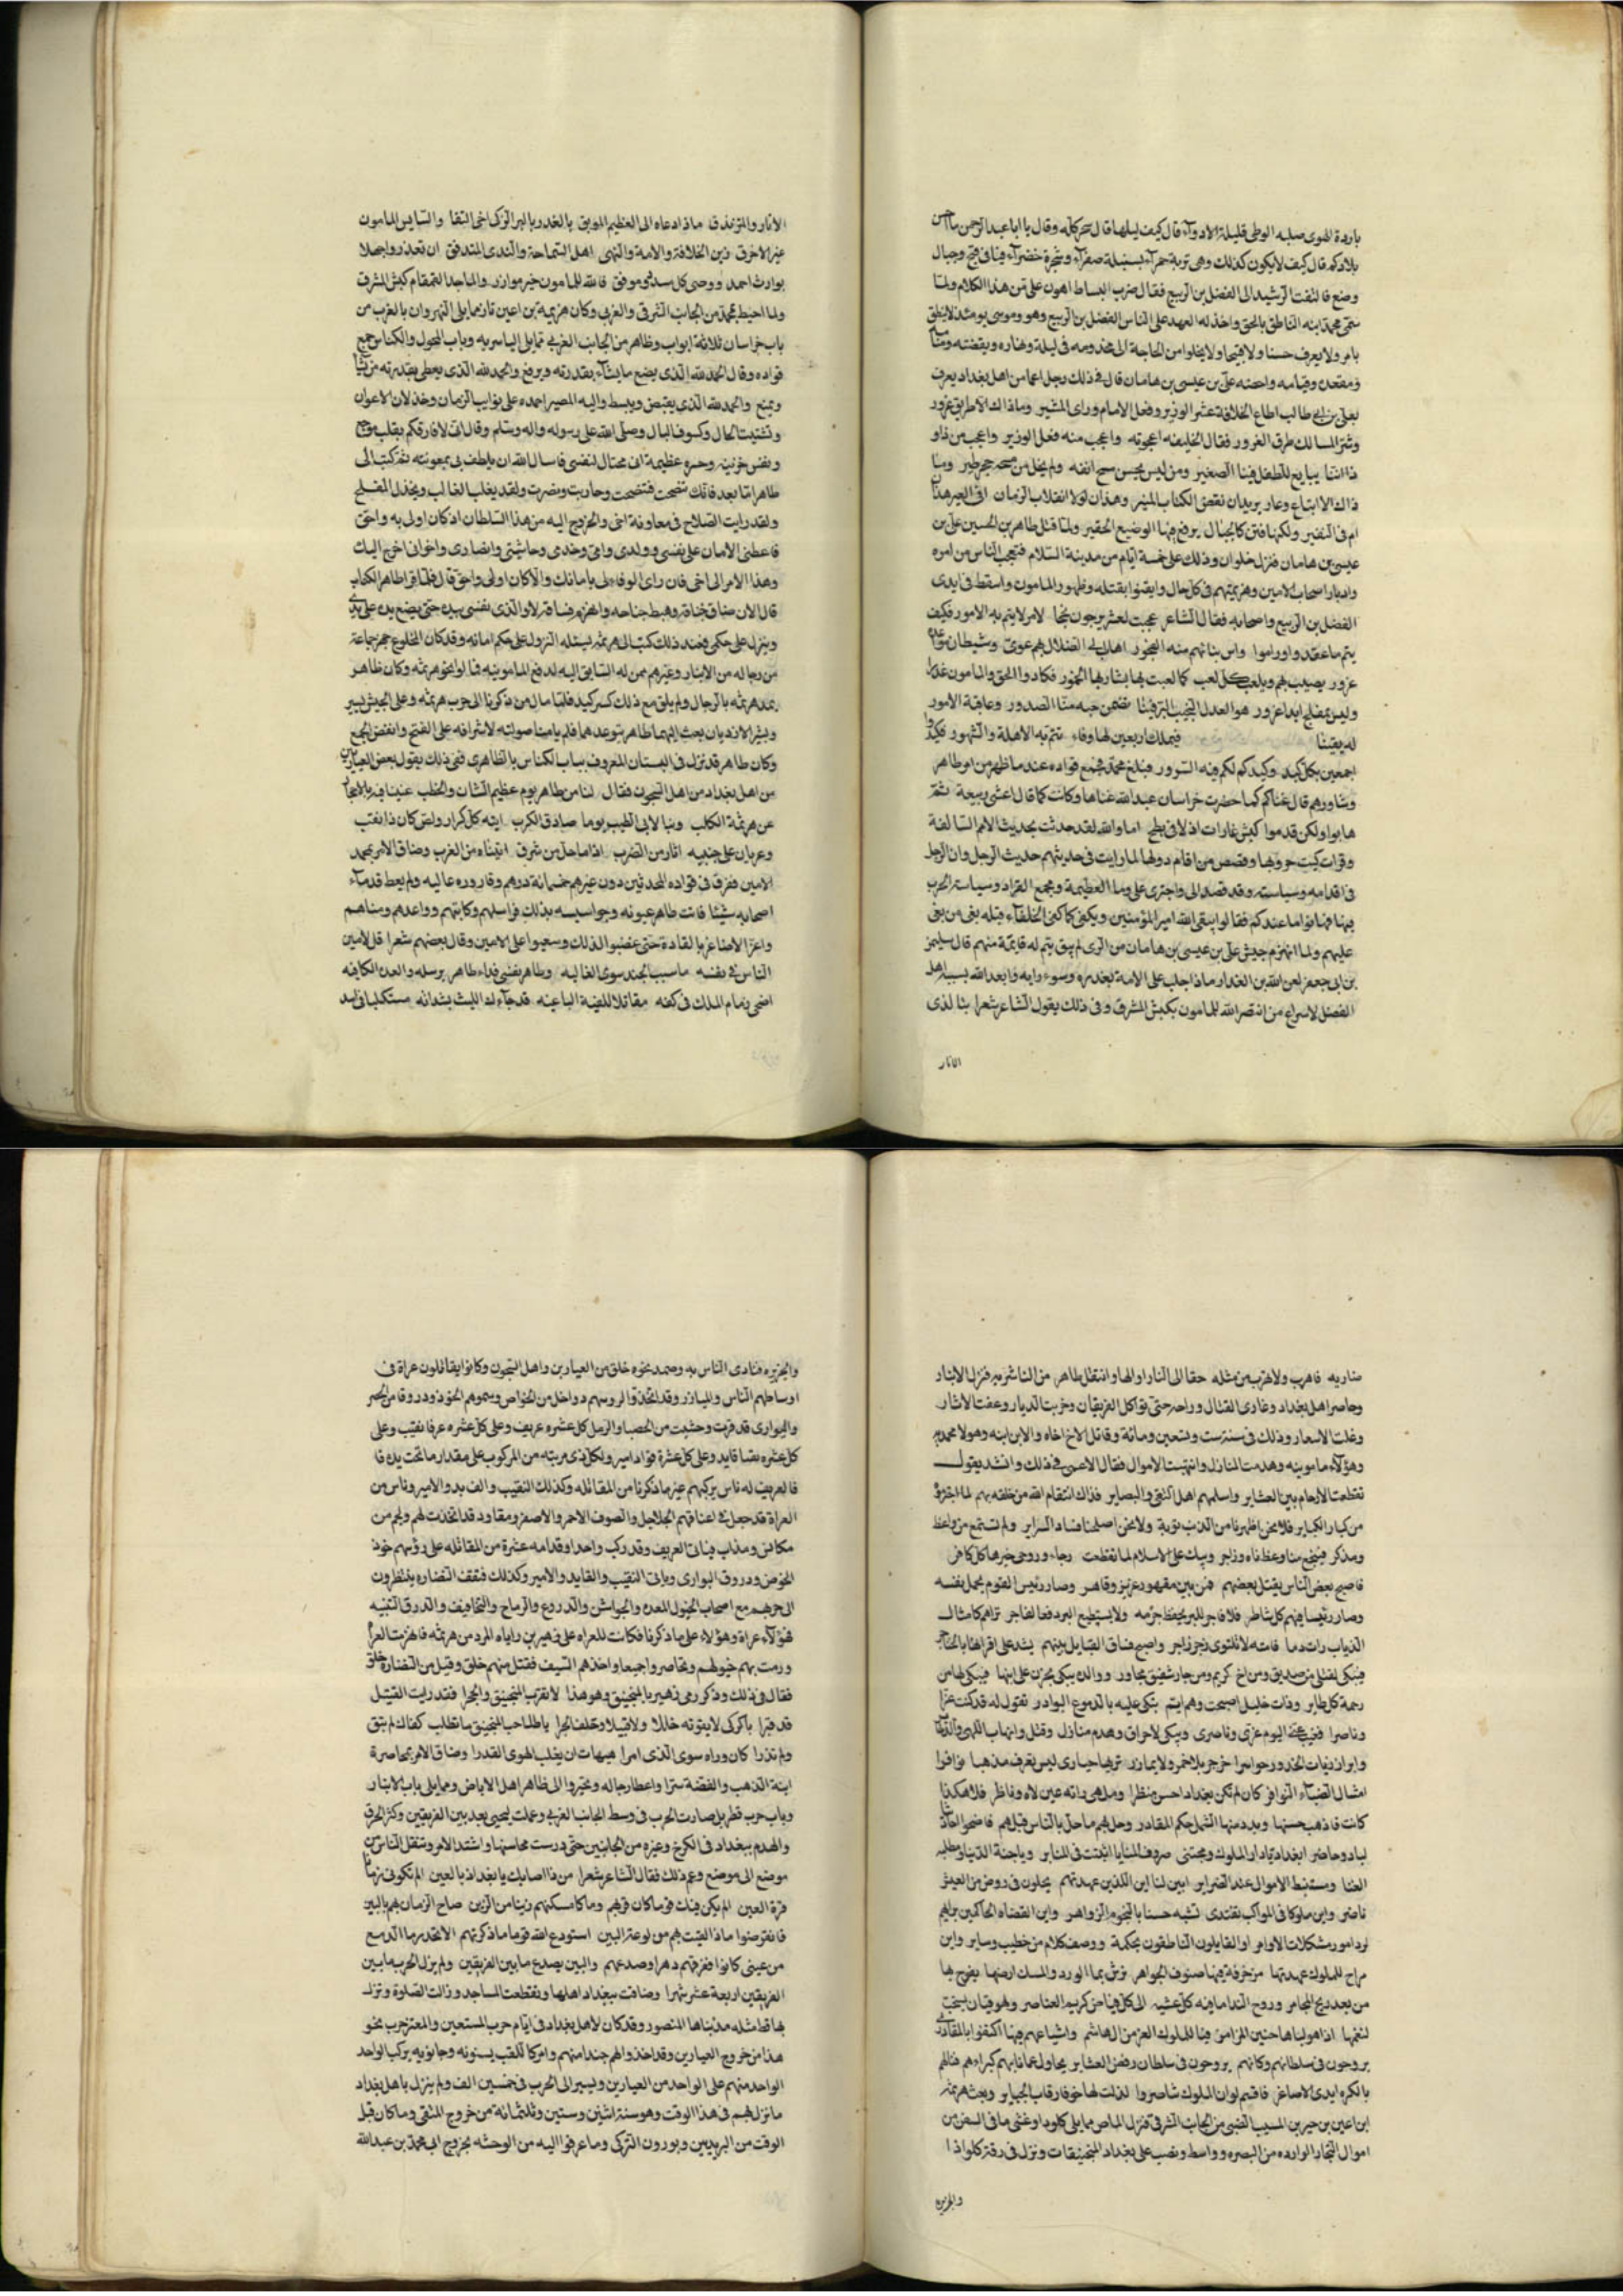 باردة الهوى صلبه الوطى قليلة الادوآء قال كيف ليلها قال سحر كله وقال يا ابا عبد الرحمن ما احسن
بلادكم قال كيف لا يكون كذلك وهى تربة حمرآء وسنبلة صفرآء وشجرة خضرآء فيافى فيح وجبال
وضع فالتفت الرشيد الى الفضل بن الربيع فقال ضرب السياط اهون على من هذا الكلام ولما
سمى محمد ابنه الناطق بالحق واخذ له العهد على الناس الفضل بن الربيع وهو وموسى يومئذ لا ينطق
بامر ولا يعرف حسنا ولا قبيحا ولا يخلوا من الحاجة الى مخدومه فى ليلة ونهاره ويقضته ومنامه
ومقعده وقيامه واحصنه على بن عيسى بن هامان قال فى ذلك رجل اعما من اهل بغداد يعرف
بعلى بن ابى طالب اضاع الخلافة غش الوزير وفعل الامام وراى المشير وماذاك الا طريق غرور
وشر المسالك طرق الغرور فقال الخليفه اعجوبه واعجب منه فعل الوزير واعجب من ذا وذا
اننا نبايع للطفل فينا الصغير ومن ليس يحسن مسح انفه ولم يخل من حجر ظير وما
ذاك الا بباغ وغاو يريدان نقض الكتاب المنير وهذان لولا انقلاب الزمان افى العير هذان
ام فى النفير ولكنها فتن كالجبال يرفع فيها الوضيع الحقير ولما قتل طاهر بن الحسين على بن
عيسى بن هامان فنزل حلوان وذلك على خمسة ايام من مدينة السلام فتعجب الناس من امره
وادبار اصحاب الامين وهزيمتهم فى كل حال وايقنوا بقتله وظهور المامون واسقط فى ايدى
الفضل بن الربيع واصحابه فقال الشاعر عجبت لمعشر يرجون نجحا لامر لا يتم به الامور فكيف
يتم ما عقدوا وراموا واس بنائهم منه الفجور اهاب الى الضلال بهم غوى وشيطان مواعده
غرور يصيب بهم ويلعب كل لعب كما لعبت بشاربها الخمور فكادوا الحق والمامون غدرا
وليس بمفلح ابدا غرور هو العدل النجيب البر فينا تضمن حبه منا الصدور وعاقبة الامور
له يقينا فيملك اربعين لها وفاء تتم به الاهلة والشهور فكيدوا
اجمعين بكل كيد وكيدكم لكم فيه السرور فبلغ محمد فجمع قواده عند ما ظهر من امر طاهر
وشاورهم قال غناكم كما حضرت خراسان عبد الله غناها وكانت كما قال اعشى ربيعة ثم
هابوا ولكن قدموا كبش غارات اذلا فى بطح اما والله لقد حدثت بحديث الامم السالفة
وقرات كتب حروبها وقصص من اقام دولها لما رايت فى حديثهم حديث الرجل وان الرجل
فى اقدامه وسياسته وقد قصد الى واجترى على وما العظيمة وجمع القراد وسياسة الحرب
فيها فهاتوا ما عندكم فقالوا يبقى الله امير المؤمنين ويكفى كما كفى الخلفآء قبله بغى من بغى
عليهم ولما انهزم جيش على بن عيسى بن هامان من الرى لم يبق يتم له قايمة منهم قال سليمن
بن ابى جعفر لعن الله بن الغدار ماذا جلب على الامة بغدره وسوء رايه وابعد الله نسبه اهل
الفضل لاسراع من انتصر الله للمامون بكبش المشرق وفى ذلك يقول الشاعر شعرا بئا لذى
الاثار
الاثار والمتزندق ماذا دعاه الى العظيم الموبق بالغدر بالبر الزكى اخى التقا والسايس المامون
غير الاخرق زين الخلافة والامة والنهى اهل السماحة والندى المتدفق ان تغدروا جهلا
بوارث احمد ووصى كل مسدد وموفق فالله للمامون خير موازر والماجد القمقام كبش المشرق
ولما احيط بمحمد من الجانب الشرقى والغربى وكان هرثمة بن اعين نازلا مما يلى النهروان بالقرب من
باب خراسان ثلاثة ابواب وطاهر من الجانب الغربى مما يلى الياسريه وباب المحول والكناس جمع
قواده وقال الحمد لله الذى يضع ما يشآء بقدرته ويرفع والحمد لله الذى يعطى بقدرته من يشآء
ويمنع والحمد لله الذى يقبض ويبسط واليه المصير احمده على نوايب الزمان وخذلان الاعوان
وتشتيت الحال وكسوف البال وصلى الله على رسوله واله وسلم وقال انى لافارقكم بقلب موجع
ونفس حزينة وحسرة عظيمة انى محتال لنفسى فاسال الله ان يلطف بى بمعونته ثم كتب الى
طاهر اما بعد فانك نصحت فنصحت وحاربت ونصرت ولقد يغلب الغالب ويخذل المفلح
ولقد رايت الصلاح فى معاونة اخى والخروج اليه من هذا السلطان اذ كان اولى به واحق
فاعطنى الامان على نفسى وولدى وامى وجدى وحاشيتى وانصارى واخوانى اخرج اليك
وهذا الامر الى اخى فان راى الوفاء لى بامانك والا كان اولى واحق قال فلما قرا طاهر الكتاب
قال الان ضاق خناقه وهبط جناحه وانهزم فساقه لا والذى نفسى بيده حتى يضع يده على يدى
وينزل على حكمى فعند ذلك كتب الى هرثمه يسئله النزول على حكم امانه وقد كان المخلوع جهز جماعة
من رجاله من الابنار وغيرهم ممن له السابق اليه لدفع المامونيه فمالوا نحو هرثمه وكان طاهر
يمد هرثمه بالرجال ولم يلق مع ذلك كسر كيد فلما مال من ذكرنا الى حرب هرثمه وعلى الجيش بشير
وبشر الازديان بعث اليهما طاهر يتوعدهما فلم يامنا صولته لاشرافه على الفتح وانفض الجمع
وكان طاهر قد نزل فى البستان المعروف بباب الكناس بالظاهرى ففى ذلك يقول بعض العيارين
من اهل بغداد من اهل السجون فقال لنا من طاهر يوم عظيم الشان والخطب
عن هرثمة الكلب ومنا لابى الطيب يوما صادق الكرب ايته كل كرار ولص كان ذا نقب
وعريان على جنبيه اثار من الضرب اذا ما حل من شرق اتيناه من الغرب وضاق الامر بمحمد
الامين ففرق فى قواده المحدثين دون غيرهم خمسمائة درهم وقاروره غاليه ولم يعط قدمآء
اصحابه شيئا فاتت طاهر عيونه وجواسيسه بذلك فراسلهم وكاتبهم وواعدهم ومناهم
واغرا الاصاغر بالقادة حتى غضبوا لذلك وسعيوا على الامين وقال بعضهم شعرا قل لامين
الناس فى نفسه ما سبب الجند سوى الغاليه وطاهر نفسى فداء طاهر برسله والعده الكافيه
اضحى زمام الملك فى كفه مقاتلا للفية الباغيه قد جآءك الليث بشداته مستكلبا فى اسد
ضاريه فاهرب ولا مهرب من مثله حقا الى النار او الهاويه وانتقل طاهر من الناشريه فنزل الانبار
وحاصر اهل بغداد وغادى القتال وراحه حتى تواكل الفريقان وخربت الديار وعفت الاثار
وغلت الاسعار وذلك فى سنة ست وتسعين ومائة وقاتل الاخ اخاه والابن ابنه وهولا محمديه
وهؤلآء مامونيه وهدمت المنازل وانتهبت الاموال فقال الاعمى فى ذلك وانشد يقول
تقطعت الارحام بين العشاير واسلمهم اهل التقى والبصاير فذاك انتقام الله من خلقه بهم لما اجترؤ
من كبار الكباير فلا نحن اظهرنا من الذنب توبة ولا نحن اصلحنا فساد السراير ولم نستمع من واعظ
ومذكر فينجع منا وعظ ناه وزاجر ويبك على الاسلام لما تقطعت رجاه ورجى خيرها كل كافر
فاصبح بعض الناس يقتل بعضهم فمن بين مقهور عزيز وقاهر وصار رئيس القوم يحمل نفسه
وصار رئيسا فيهم كل شاطر فلا فاجر للبر يحفظ حرمه ولا يستطيع البر دفعا لفاجر تراهم كامثال
الذياب رات دما فامته لا تلتوى بزجر زاجر واصبح فساق القبايل بينهم يشد على اقرانها بالخناجر
فيبكى لقتلى من صديق ومن اخ كريم ومن جار شفيق مجاور ووالده تبكى بحزن على ابنها فيبكى لها من
رحمة كل طاير وذات خليل اصبحت وهى ايم تبكى عليه بالدموع البوادر تقول له قد كنت عزا
وناصرا فغيب عنى اليوم عزى وناصرى وبكى لاحراق وهدم منازل وقتل وانهاب اللهى والذخاير
وابراز ربات الخدور حواسرا خرجن بلا خمر ولا بمازر تراها حيارى ليس تعرف مذهبا نوافرا
امثال الضباء النوافر كان لم تكن بغداد احسن منظرا وملهى راته عين لاه وناظر فلا هكذا
كانت فاذهب حسنها وبدد منها الشمل حكم المقادر وحل بهم ما حل بالناس قبلهم فاضحوا احاديثا
لباد وحاضر ابغداد يا دار الملوك ومجتنى صروف المنايا اثبتت فى المنابر وياجنة الدنيا ومطلب
الغنا ومستنبط الاموال عند الضراير ابينى لنا اين الذين عهدتهم يحلون فى روض من العيش
ناضر واين ملوكا فى المواكب تغتدى تشبه حسنا بالنجوم الزواهر واين القضاه الحاكمين برايهم
لرد امور مشكلات الاوامر او القايلون الناطقون بحكمة ووصف كلام من خطيب وساير واين
مراح للملوك عهدتها مزخرفة فيها صنوف الجواهر ترش بما الورد والمسك ارضها يفوح بها
من بعد ريح المجامر وروح الندا ما فيه كل عشيه الى كل فياض كريم العناصر ولهو قيان تستجيب
لنغمها اذا هو لباها حنين المزامر فيا للملوك الغر من ال هاشم واشياعهم فيها اكتفوا بالمقادر
يروحون فى سلطانهم وكانهم يروحون فى سلطان بعض العشاير يحاول عما نابهم كبراءهم فنالهم
بالكره ايدى الاصاغر فاقسم لو ان الملوك تناصروا لذلت لها خوفا رقاب الجبابر وبعث هرثمه
ابن اعين بن زهير بن المسيب الضبى من الجانب الشرقى فنزل الماص مما يلى كلواذا وغشى ما فى السفن من
اموال التجار الوارده من البصره وواسط ونصب على بغداد المنجنيقات ونزل فى رقة كلواذا
والجزيره
والجزيره فتادى الناس به وصمد نحوه خلق من العيارين واهل السجون وكانوا يقاتلون عراة فى
اوساطهم الناس والميازر وقد اتخذوا لروسهم دواخل من الخواص وسموهم الخوذ ودروقا من الحصر
والبوارى قد قيرت وحشيت من الحصبا والرمل كل عشره عريف وعلى كل عشره عرفا نقيب وعلى
كل عشره نقبا قايد وعلى كل عشرة قواد امير ولكل ذى مرتبه من المركوب على مقدار ما تحت يده فا
فالعريف له ناس يركبهم غير ما ذكرنا من المقاتله وكذلك النقيب والقايد والامير وناس من
العراة قد جعل فى اعناقهم الجلاجل والصوف الاحمر والاصفر ومقاود قد اتخذت لهم ولجم من
مكانس ومذاب فياتى العريف وقد ركب واحدا وقدامه عشرة من المقاتله على رؤسهم خوذ
الخوص ودروق البوارى وياتى النقيب والقايد والامير وكذلك فتقف النضاره ينظرون
الى حربهم مع اصحاب الخيول المعده والجواشن والدروع والرماح والتخافيف والدرق التبتيه
فهؤلآء عراة وهؤلاء على ما ذكرنا فكانت للعراه على زهير بن واياه المدد من هرثمه فانهزمت العراة
ورمت بهم خيولهم وتحاصروا جميعا واخذهم السيف فقتل منهم خلق وقتل من النضاره خلق
فقال فى ذلك وذكر رمى زهير بالمنجنيق وهو هذا لا تقرب المنجنيق والحجرا فقد رايت القتيل
قد قبرا باكر كى لا يفوته خاللا ولا قتيلا وخلف الحجرا يا صاحب المنجنيق ما تطلب كفاك لم تبق
ولم تذرا كان وراه سوى الذى امرا هيهات ان يغلب الهوى القدرا وضاق الامر بمحاصرة
ابنة الذهب والفضة سترا واعطا رجاله وتحيزوا الى طاهر اهل الارباض ومما يلى باب الانبار
وباب حرب قطربل صارت الحرب فى وسط الجانب الغربى وعملت المجانيق بين الفريقين وكثر الحرق
والهدم ببغداد فى الكرخ وغيره من الجانبين حتى درست محاسنها واشتد الامر وتنقل الناس من
موضع الى موضع وعم ذلك فقال الشاعر شعرا من ذا اصابك يا بغداد بالعين الم تكونى زمانا
قرة العين الم يكن فيك قوم كان قربهم وما كا مسكنهم زينا من الزين صاح الزمان بهم بالبين
فانقرضوا ماذا لقيت بهم من لوعة البين استودع الله قوما ما ذكرتهم الا تحدر ما الدمع
من عينى كانوا ففرقهم دهر وصدعهم والبين يصدع ما بين الفريقين ولم يزل الحرب ما بين
الفريقين اربعة عشر شهرا وضاقت ببغداد اهلها وتقطعت المساجد وزالت الصلوة ونزل
بها قط مثله مذ بناها المنصور وقد كان لاهل بغداد فى ايام حرب المستعين والمعتز حرب نحو
هذا من خروج العيارين وقد اخذوا لهم جندا منهم وامركا للقب يسنونه وحاثويه يركب الواحد
الواحد منهم على الواحد من العيارين ويسير الى الحرب فى خمسين الف ولم ينزل باهل بغداد
ما نزل بهم فى هذا الوقت وهو سنة اثنين وستين وثلثمائة من خروج المتقى وما كان قبل
الوقت من البريديين ويورون التركى وما عرفوا اليه من الوحشه بخروج ابى محمد بن عبد الله